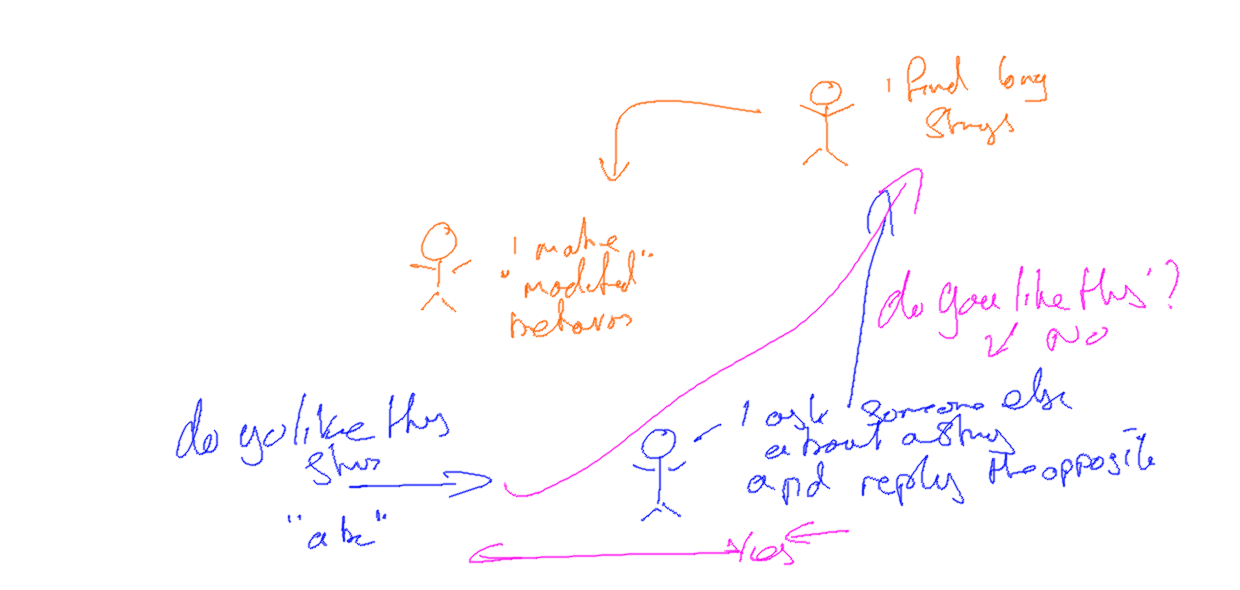 I find long
strings
I make
"modified"
behavors
do you like this?
No
do yo like this
"abc"
I ask someone else
about a string
and reply the opposite
Yes